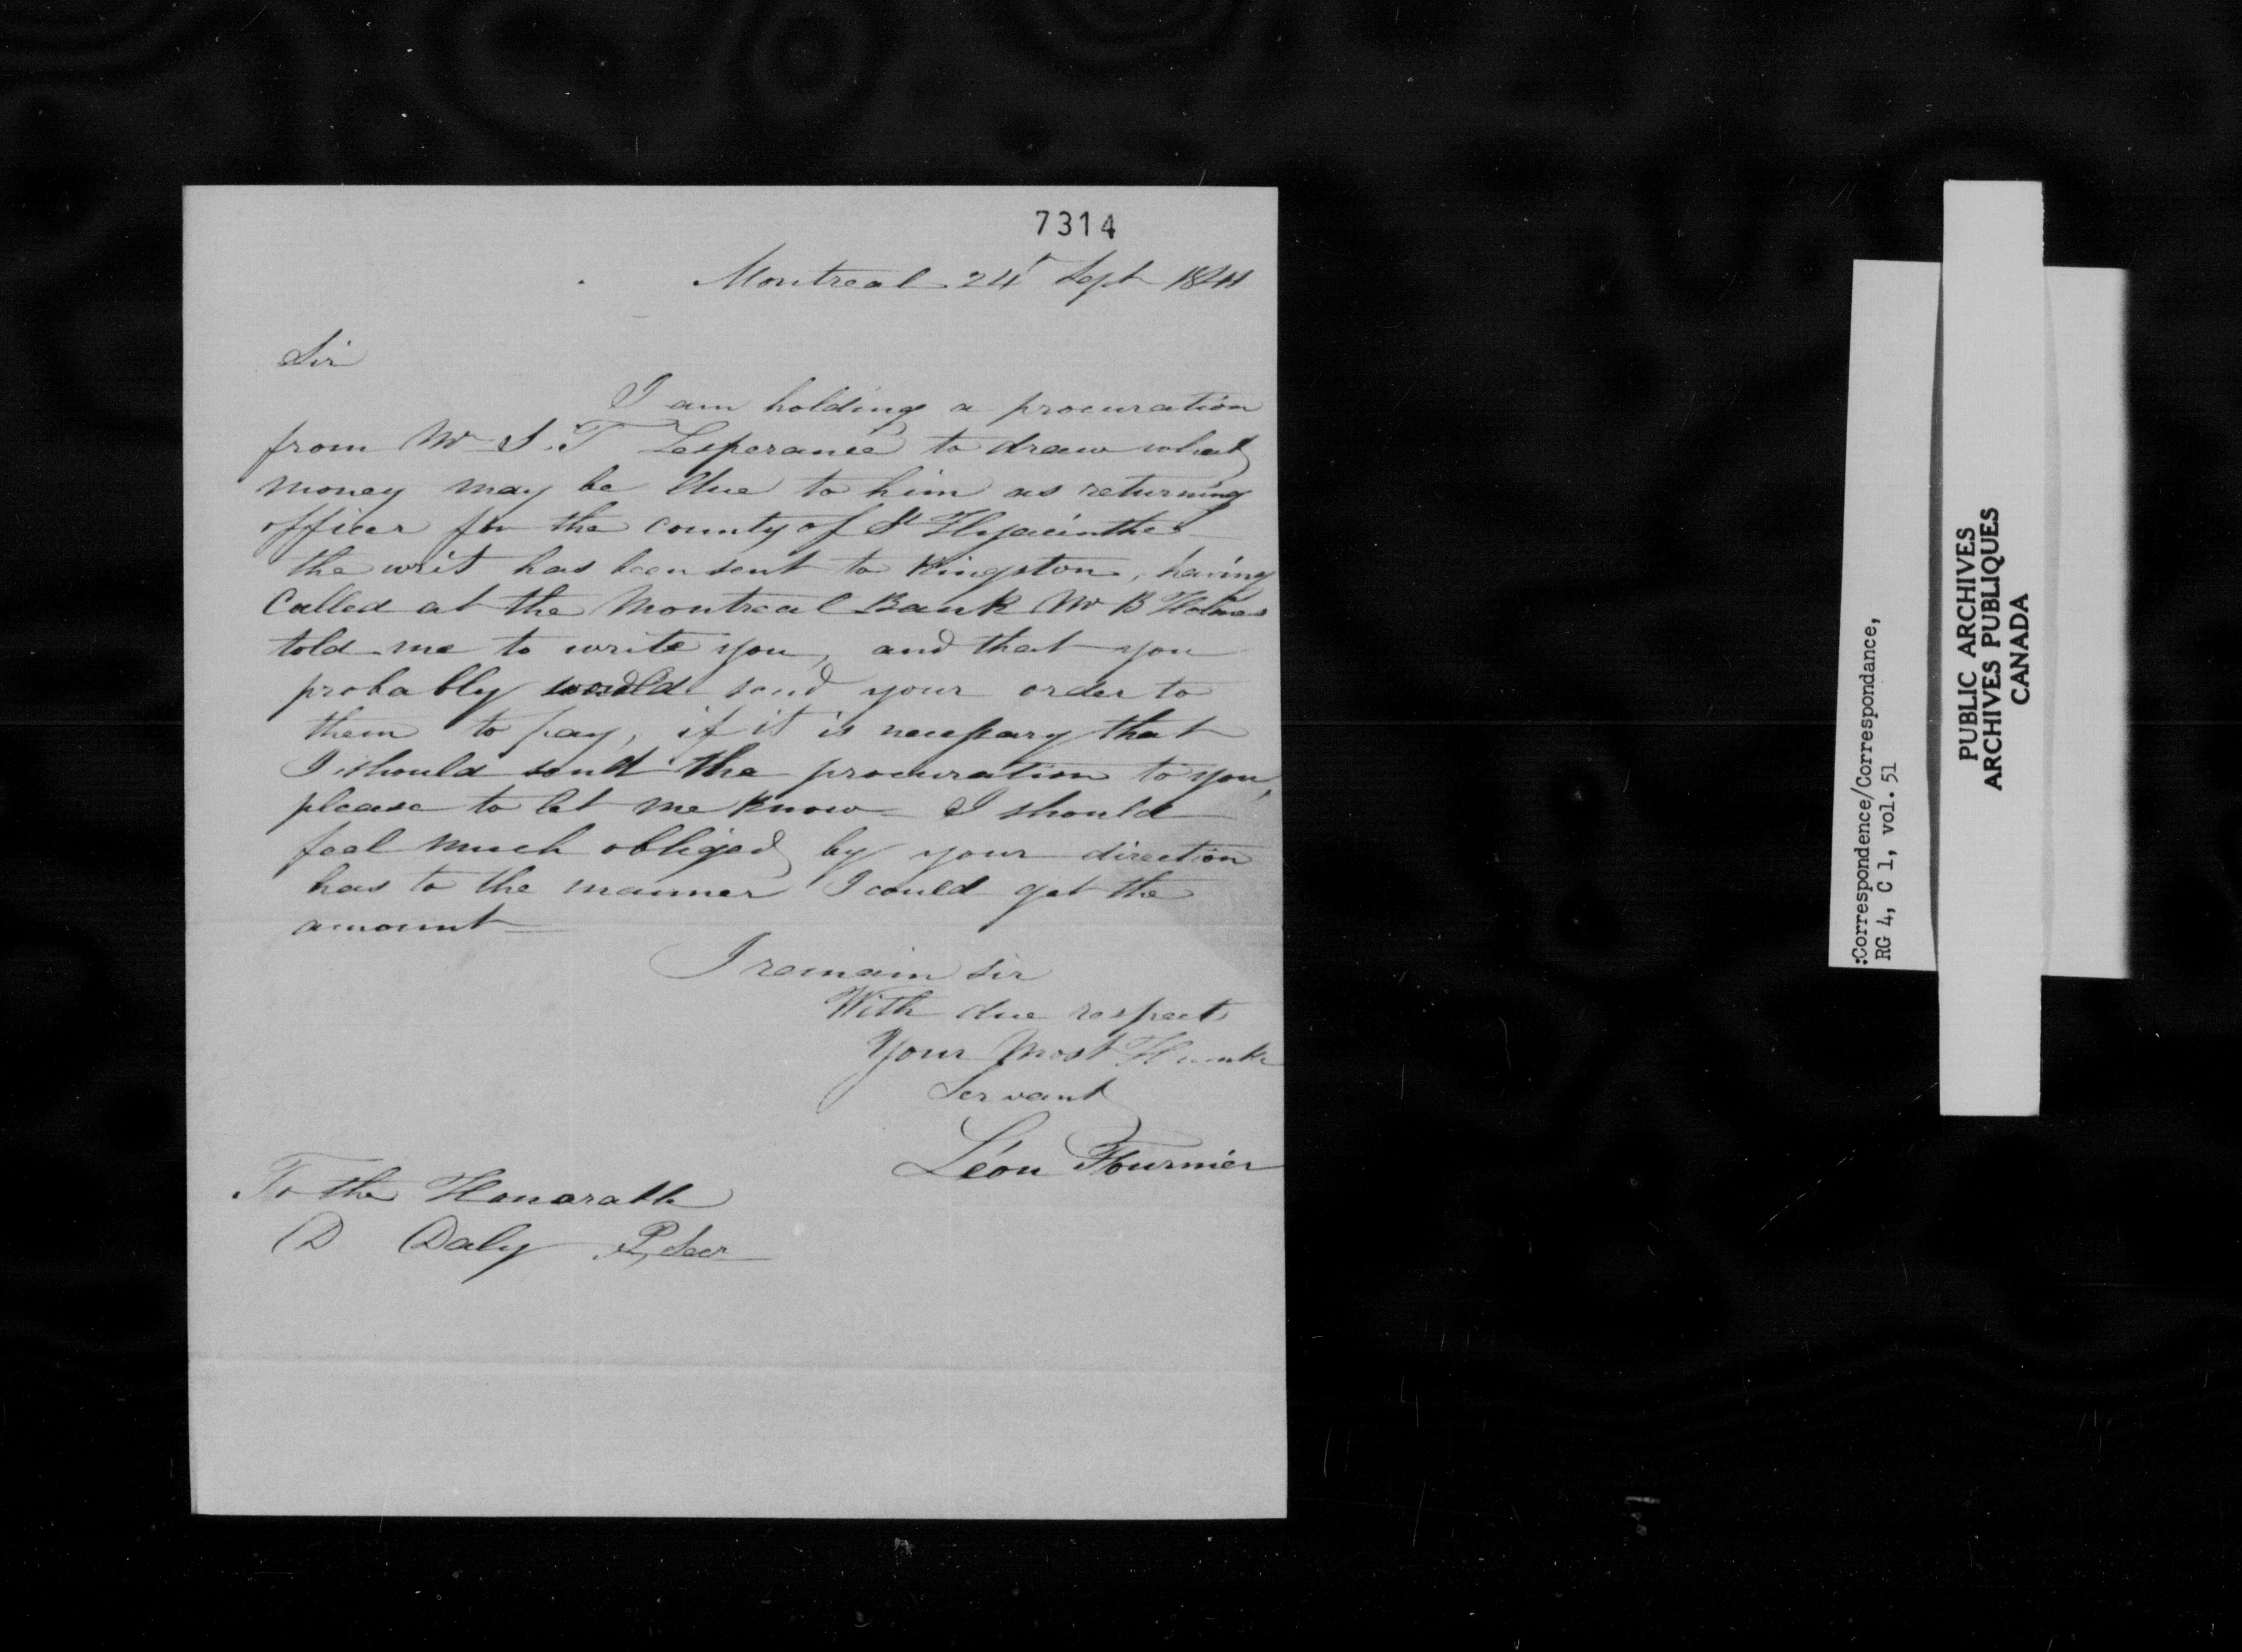 7314
Montreal 24t Sept 1841
Sir
I am holding a procuration
from Mr J. T Lesperance to draw what
money may be due to him as returning
officer for the county of St Hyacinthe
the writ has been sent to Kingston, having
Called at the Montreal Bank Mr B Holmes
told me to write you, and that you
probably would send your order to
them to pay, if it is necessary that
I should send the procuration to you,
please to let me know I should
feel much obliged by your direction
has to the manner I could get the
amount
I remain Sir
With due respect
Your Most Humble
Servant
Léon Fournier
To the Honorable
D Daly P. Secr
:Correspondence/Correspondance,
RG 4, C 1, vol. 51
PUBLIC ARCHIVES
ARCHIVES PUBLIQUES
CANADA